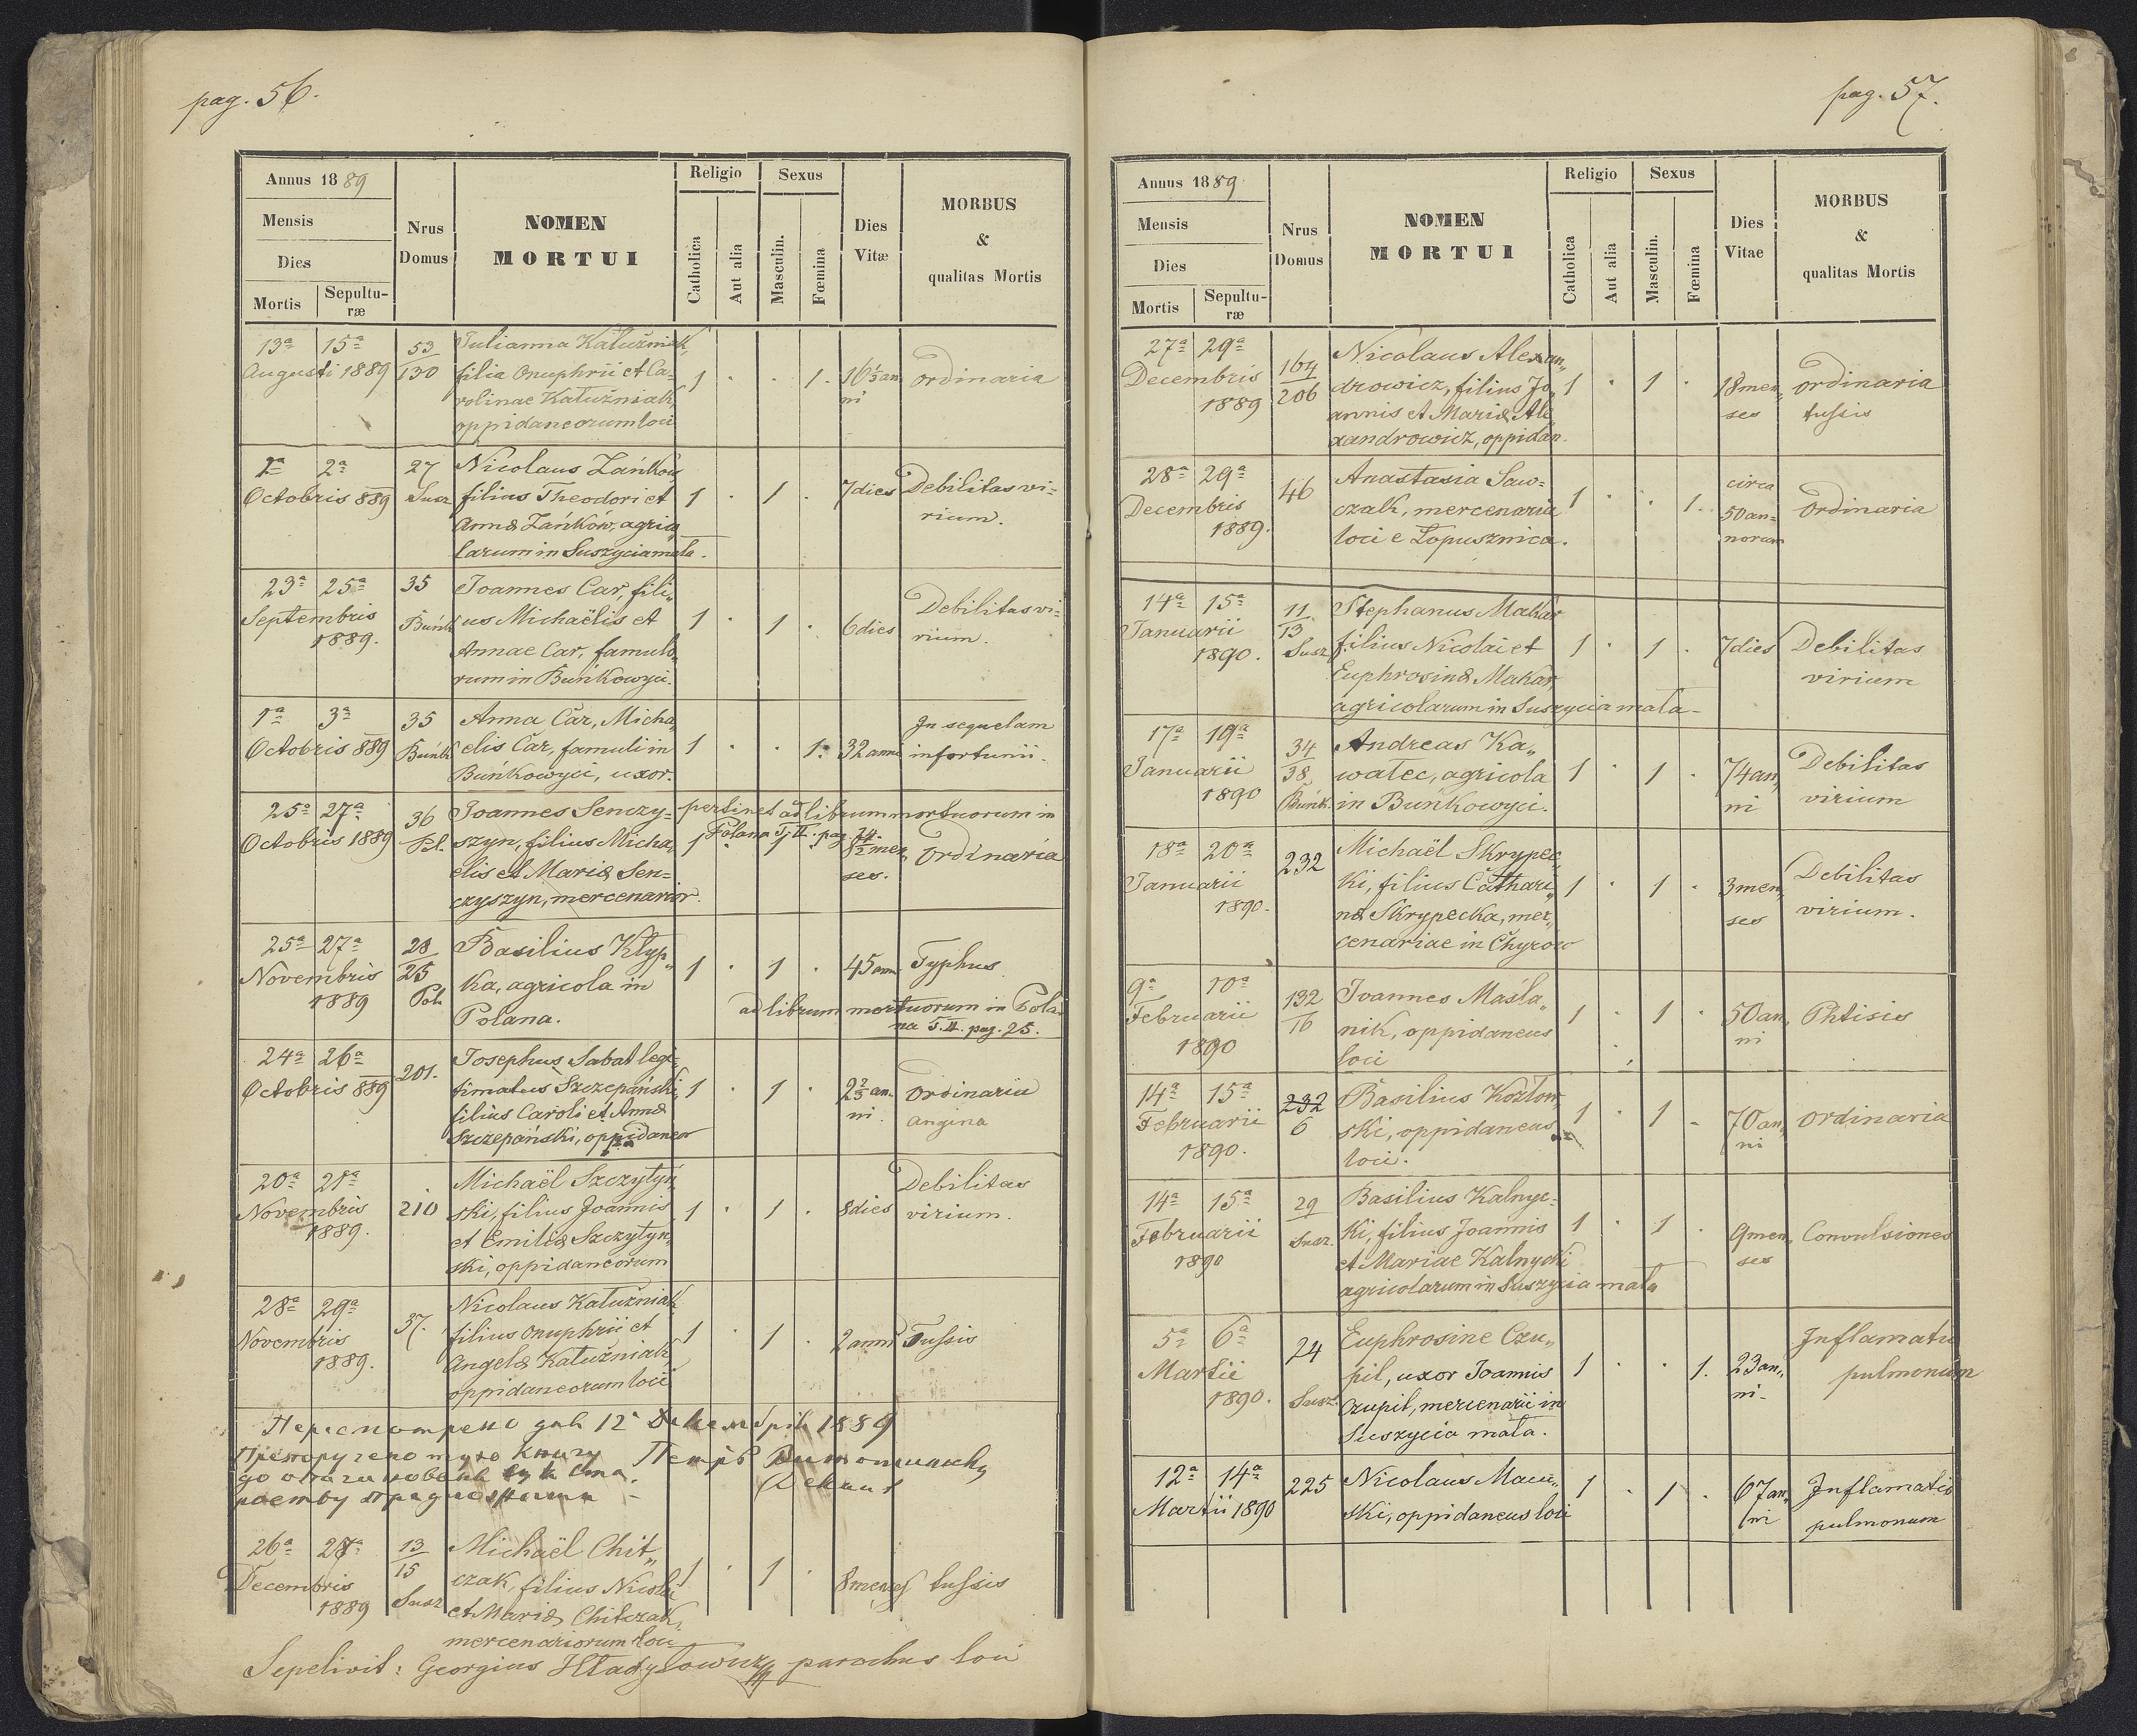 pag. 56.
Annus 1889
Mensis
Dies
Mortis
Sepultu-
ræ
Nrus
Domus
NOMEN
MORTUI
Religio
Catholica
Aut alia
Sexus
Masculin.
Fœmina
Dies
Vitæ
MORBUS
&
qualitas Mortis
13ª 15ª
Augusti 1889
53
130
Julianna Kałużniak,
filia Onuphrii et Ca-
rolinae Kałużniak,
oppidaneorum loci
1 . . 1.
16 1/3 an
ni
Ordinaria
1ª 2ª
Octobris 889
27
Susz
Nicolaus Zańków,
filius Theodori et
Annæ Zańków, agrico
larum in Suszyciamała.
1 . 1 .
7 dies
Debilitas vi-
rium.
23ª 25ª
Septembris
1889.
35
Buńk
Joannes Car, fili„
us Michaëlis et
Annae Car, famulo„
rum in Buńkowyci.
1 . 1 .
6 dies
Debilitas vi-
rium.
1ª 3ª
Octobris 889
35
Buńk
Anna Car, Micha„
elis Car, famuli in
Buńkowyci, uxor.
1 . . 1.
32 anni
In sequelam
infortunii.
25ª 27ª
Octobris 1889
36
Pol.
Joannes Senczy-
szyn, filius Micha„
elis et Mariæ Sen-
czyszyn, mercenarior.
pertinet ad librum mortuorum in
Polana T. II. pag. 24.
1 . 1 .
8 1/2 men„
ses.
Ordinaria
25ª 27ª
Novembris
1889
28
25
Pol.
Basilius Kłyp„
ka, agricola in
Polana.
1 . 1 .
45 ann.
Typhus
ad librum mortuorum in Pola-
na T. II. pag. 25.
24ª 26ª
Octobris 889
201.
Josephus Sabat legi-
timatus Szczepański,
filius Caroli et Annæ
Szczepański, oppidaneor
1 . 1 .
2 2/3 an.
ni.
Ordinaria
angina
20ª 21ª
Novembris
1889.
210
Michaël Szczytyń
ski, filius Joannis
et Emiliæ Szczytyń„
ski, oppidaneorum
1 . 1 .
8 dies
Debilitas
virium.
28ª 29ª
Novembris
1889.
37.
Nicolaus Kałużniak
filius Onuphrii et
Angelæ Kałużniak,
oppidaneorum loci
1 . 1 .
2 anni
Tussis
12 1889
26ª 28ª
Decembris
1889
13
15
Susz
Michaël Chit„
czak, filius Nicolai
et Mariæ Chitczak,
mercenariorum loci
1 . 1 .
8 menses
tussis
Sepelivit: Georgius Hładyłowicz parochus loci
pag. 57.
Annus 1889
Mensis
Dies
Mortis
Sepultu-
ræ
Nrus
Domus
NOMEN
MORTUI
Religio
Catholica
Aut alia
Sexus
Masculin.
Fœmina
Dies
Vitae
MORBUS
&
qualitas Mortis
27ª 29ª
Decembris
1889
164
206
Nicolaus Alexan„
drowicz, filius Jo„
annis et Mariæ Ale
xandrowicz, oppidan.
1 . 1 .
18 men„
ses
Ordinaria
tussis
28ª 29ª
Decembris
1889.
46
Anastasia Saw-
czak, mercenaria
loci e Łopusznica.
1 . . 1.
circa
50 an-
norum
Ordinaria
14ª 15ª
Januarii
1890.
11
13
Susz
Stephanus Makar
filius Nicolai et
Euphrosinæ Makar,
agricolarum in Suszycia mała-
1 . 1 .
7 dies
Debilitas
virium
17ª 19ª
Januarii
1890
34
38
Buńk.
Andreas Ka„
wałec, agricola
in Buńkowyci.
1 . 1 .
74 an„
ni
Debilitas
virium
18ª 20ª
Januarii
1890.
232
Michaël Skrypec„
ki, filius Cathari„
næ Skrypecka, mer„
cenariae in Chyrow
1 . 1 .
3 men„
ses
Debilitas
virium.
9ª 10ª
Februarii
1890
132
16
Joannes Maśla„
nik, oppidaneus
loci
1 . 1 .
50 an„
ni
Phtisis
14ª 15ª
Februarii
1890.
232
6
Basilius Kozłow„
ski, oppidaneus
loci.
1 . 1 .
70 an„
ni
Ordinaria
14ª 15ª
Februarii
1890
29
Susz.
Basilius Kalnyc-
ki, filius Joannis
et Mariae Kalnycki
agricolarum in Suszycia mała
1 . 1 .
9 men„
ses
Convulsiones
5ª 6ª
Martii
1890.
24
Susz.
Euphrosine Czu„
pil, uxor Joannis
Czupil, mercenarii in
Suszycia mała.
1 . . 1.
23 an„
ni.
Inflamatio
pulmonum
12ª 14ª
Martii 1890
225
Nicolaus Maciń„
ski, oppidaneus loci
1 . 1 .
67 an„
ni
Inflamatio
pulmonum